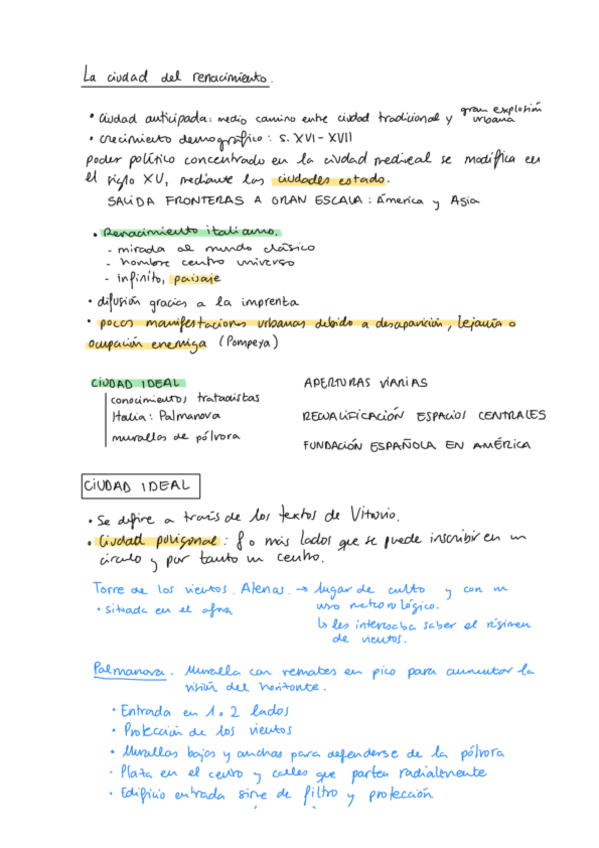 La ciudad del renacimiento.
• ciudad anticipada: medio camino entre ciudad tradicional y gran explosión urbana
• crecimiento demográfico: s. XVI - XVII
poder político concentrado en la ciudad medieval se modifica en
el siglo XV, mediante las ciudades estado.
SALIDA FRONTERAS A GRAN ESCALA: América y Asia
• Renacimiento italiano.
- mirada al mundo clásico
- hombre centro universo
- infinito, paisaje
• difusión gracias a la imprenta
• pocas manifestaciones urbanas debido a desaparición, lejanía o
ocupación enemiga (Pompeya)
CIUDAD IDEAL
conocimiento, tratadistas
Italia: Palmanova
murallas de pólvora
APERTURAS VIARIAS
RECUALIFICACIÓN ESPACIOS CENTRALES
FUNDACIÓN ESPAÑOLA EN AMÉRICA
CIUDAD IDEAL
• Se define a través de los textos de Vitruvio.
• Ciudad poligonal: 8 o más lados que se puede inscribir en un
círculo y por tanto un centro.
Torre de los vientos. Atenas. → lugar de culto y con un
uso metrológico.
• situada en el ágora
↳ les interesaba saber el régimen
de vientos.
Palmanova. Muralla con remates en pico para aumentar la
visión del horizonte.
• Entrada en 1 o 2 lados
• Protección de los vientos
• Murallas bajas y anchas para defenderse de la pólvora
• Plaza en el centro y calles que parten radialmente
• Edificio entrada sirve de filtro y protección